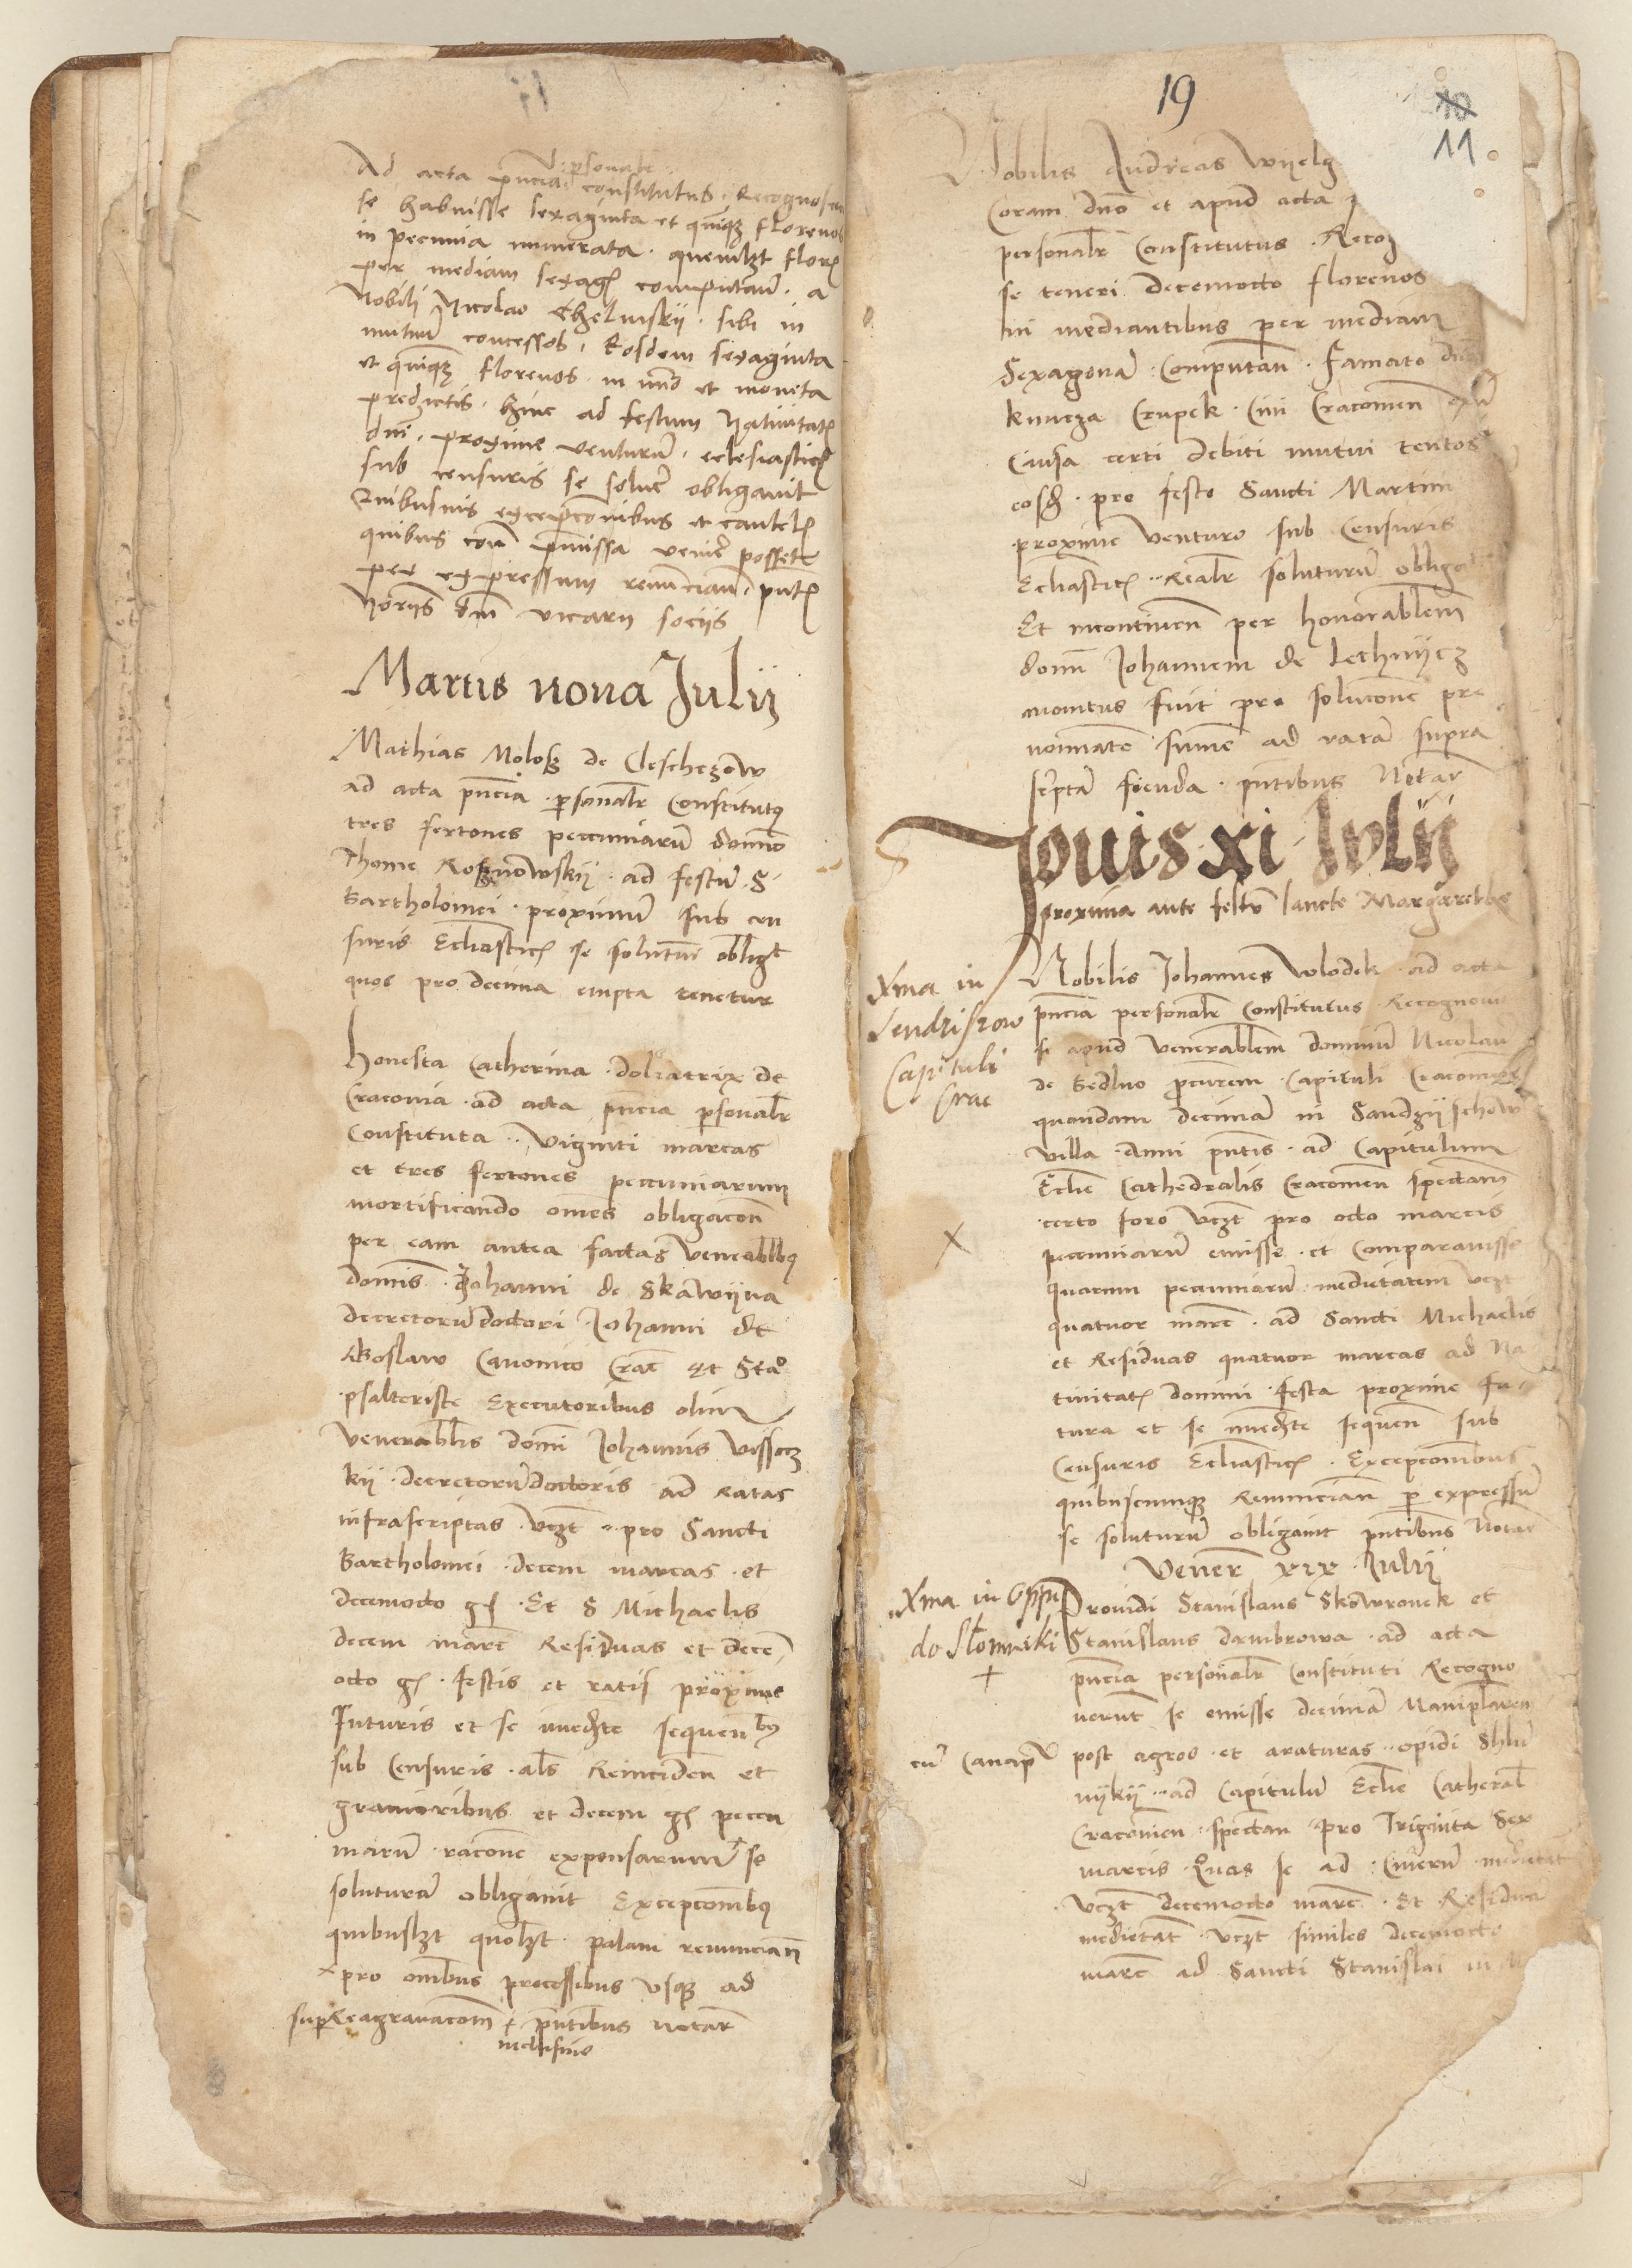 Ad acta pñcia personalr constitutus Recognoscit
se habuisse sexaginta et quinqz florenos
in pecunia numerata quemlzt flor
per mediam sexag computan a
Nobili Nicolao Chelmskij sibi in
mutuu concessos Eosdem sexaginta
et quinqz florenos in et moneta
predictis hinc ad festum Natiuitat
dni proxime venturu eclesiastic
sub censuris se soluer obligauit
Quibusuis excepconibus et cautel
quibus con pmissa venir posset
per expressum renunciam
Noriis dni vicarii sociis
Martis nona Julij
Mathias Molosz de Cleschczow
ad acta pñcia personalr Constitutus
tres fertones pecuniaru domino
Thome Roznowskij ad festu S
Bartholomei proximu sub cen
suris Ecliastic se soluturu obligt
quos pro decima empta tenetur
honesta Catherina doleatrix de
Cracouia ad acta pñcia psonalr
Constituta viginti marcas
et tres fertones pecuniarum
mortificando omnes obligacon
per eam antea factas venerablibus
dominis Johanni de Skawijna
decretoru doctori Johanni de
Oslaw Canonico Crac et Sta
psalteriste Executoribus olim
venerablis domini Johannis
kij decretoru doctoris ad Ratas
infrascriptas vczt pro Sancti
Bartholomei decem marcas et
decemocto gs Et S Michaelis
decem marc Residuas et dece
octo gs festis et ratis proxime
Futuris et se inediate sequen bus
sub Censuris als Reinciden et
grauioribus et decem gs pecu
niaru racone expensarum se
soluturu obligauit Excepconibus
quibuslzt quolzt palam renuncian
pro omibus processibus vsqz ad
superReagrauacom pntibus notar
inclusiue
19
10
11
Nobilis Andreas Wijelg
Coram dno et apud acta
personalr Constitutus Recog
se teneri decemocto florenos
in mediantibus per mediam
Sexagena Computan Famato dno
kuncza Crupek Ciui Cracouien
Causa certi debiti mutui tentos
eosd pro festo Sancti Martini
proxime venturo sub Censuris
Ecliastic Realr soluturu obliga
Et incontinen per honorablem
domi Johannem de Lethnijcz
monitus fuit pro solucone pre
nominate sume ad rata supra
scripta fienda pntibus Notar
Jouis xi Julij
proxima ante festu sancte Margarethe
Xma in
Sendzissow
Capituli
Crac
Nobilis Johannes Wlodek ad acta
pñcia personalr Constitutus Recognouit
se apud venerablem dominu Nicolau
de Bedlno procurem Capituli Cracouien
quandam decima in Sandzijschow
villa Anni pntis ad Capitulum
Eclie Cathedralis Cracouien spectan
certo foro vczt pro octo marcis
pecuniaru emisse et Comparauisse
quarum pecuniaru medietatem vczt
quatuor marc ad Sancti Michaelis
et Residuas quatuor marcas ad Na
tiuitat domini festa proxime fu
tura et se inediate sequen sub
Censuris Ecliastic Excepconibus
quibuscumqz Renuncian p expressu
se soluturu obligauit pntibus Notar
Vener xix Julij
Xma in Oppi
do Slomniki
Prouidi Stanislaus Skowronek et
Stanislaus dambrowa ad acta
pñcia personalr Constituti Recogno
uerut se emisse decima Maniplaren
cu Canap
post agros et araturas opidi Shlu
nijkij ad Capitulu Eclie Cathedral
Cracouien spectan pro Triginta Sex
marcis Quas se ad Cineru medietat
vczt decemocto marc Et Residua
medietat vczt similes decemocto
marc ad Sancti Stanislai in M